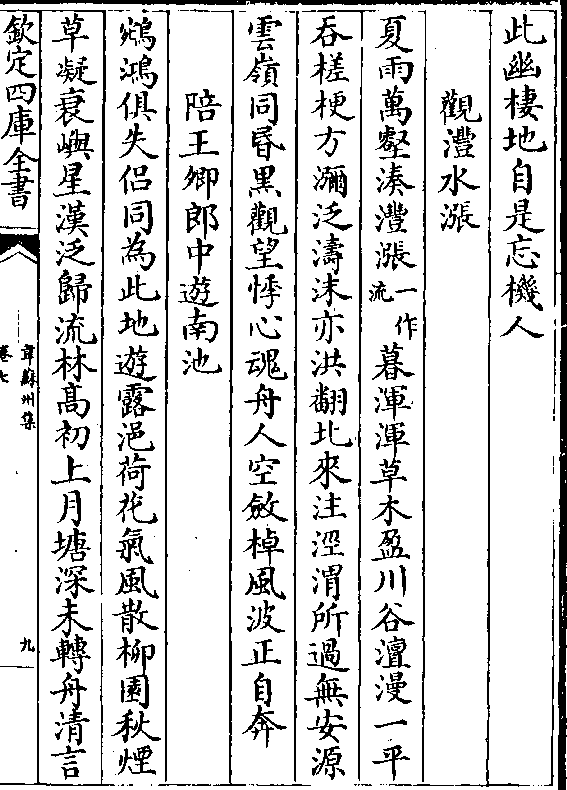 此幽棲地自是忘機人
觀灃水漲
夏雨萬壑湊灃漲一作流暮渾渾草木盈川谷澶漫一平
吞槎梗方瀰泛濤沫亦洪翻北來注涇渭所過無安源
雲嶺同昏黒觀望悸心魂舟人空斂棹風波正自奔
陪王卿郎中遊南池
鵷鴻俱失侶同為此地遊露浥荷花氣風散柳園秋煙
草凝衰嶼星漢泛歸流林髙初上月塘深未轉舟清言
欽定四庫全書
韋蘇州集
卷七
九